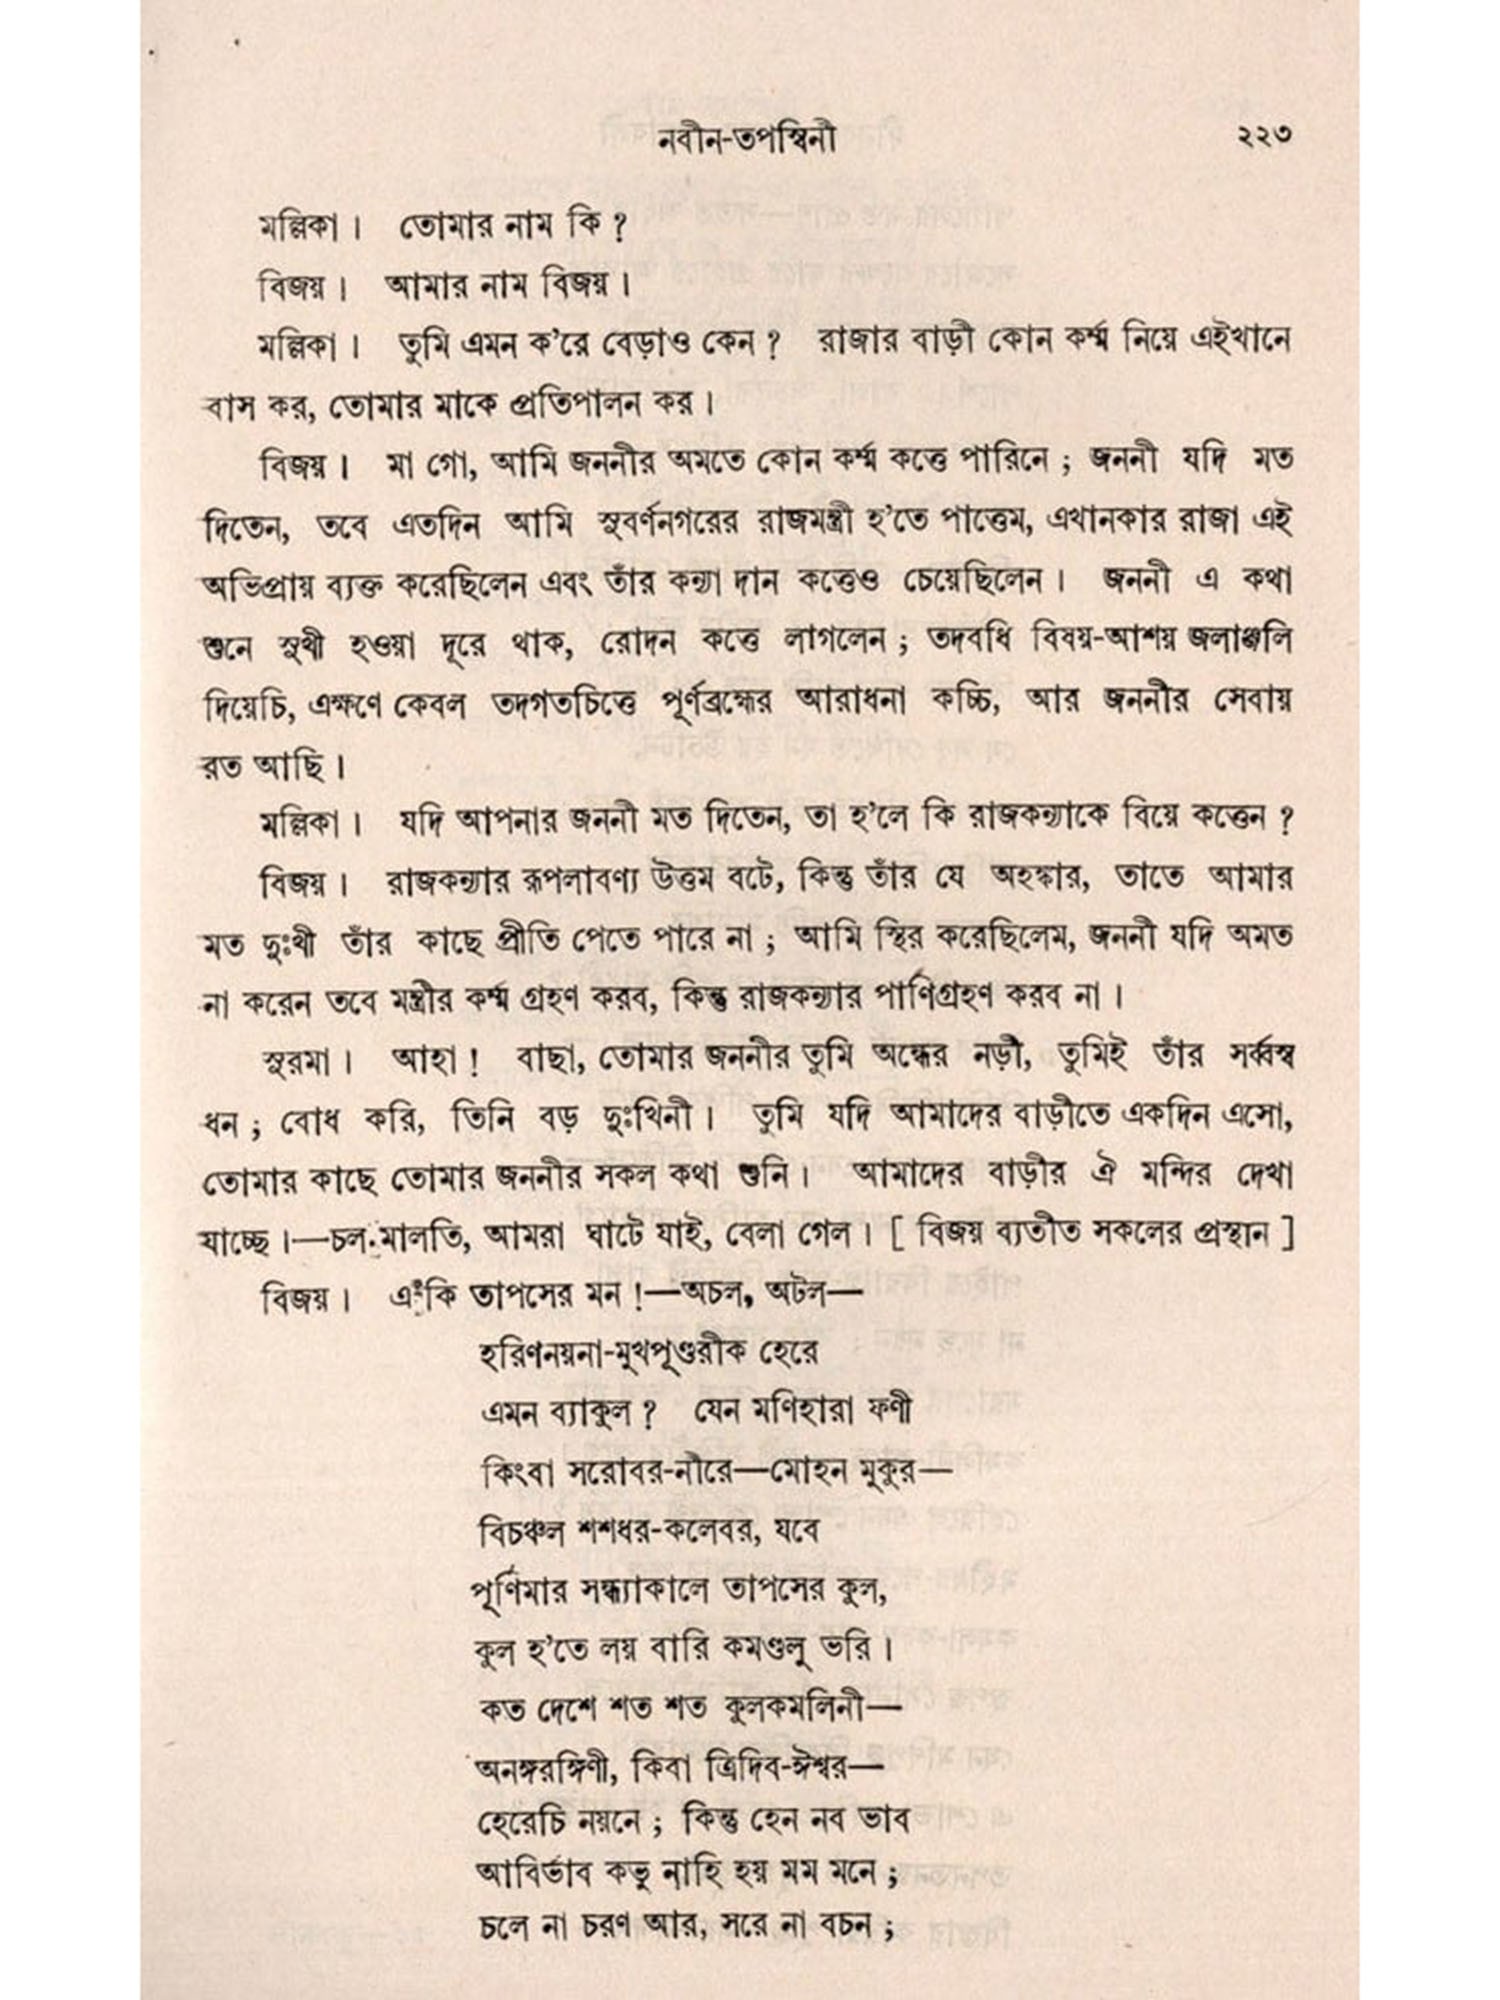 নবীন-তপস্বিনী ২২৩
মল্লিকা। তোমার নাম কি ?
বিজয়। আমার নাম বিজয়।
মল্লিকা। তুমি এমন ক'রে বেড়াও কেন ? রাজার বাড়ী কোন কর্ম্ম নিয়ে এইখানে
বাস কর, তোমার মাকে প্রতিপালন কর।
বিজয়। মা গো, আমি জননীর অমতে কোন কর্ম্ম কত্তে পারিনে ; জননী যদি মত
দিতেন, তবে এতদিন আমি সুবর্ণনগরের রাজমন্ত্রী হ'তে পাত্তেম, এখানকার রাজা এই
অভিপ্রায় ব্যক্ত করেছিলেন এবং তাঁর কন্যা দান কত্তেও চেয়েছিলেন। জননী এ কথা
শুনে সুখী হওয়া দূরে থাক, রোদন কত্তে লাগলেন ; তদবধি বিষয়-আশয় জলাঞ্জলি
দিয়েচি, এক্ষণে কেবল তদগতচিত্তে পূর্ণব্রহ্মের আরাধনা কচ্চি, আর জননীর সেবায়
রত আছি।
মল্লিকা। যদি আপনার জননী মত দিতেন, তা হ'লে কি রাজকন্যাকে বিয়ে কত্তেন ?
বিজয়। রাজকন্যার রূপলাবণ্য উত্তম বটে, কিন্তু তাঁর যে অহঙ্কার, তাতে আমার
মত দুঃখী তাঁর কাছে প্রীতি পেতে পারে না ; আমি স্থির করেছিলেম, জননী যদি অমত
না করেন তবে মন্ত্রীর কর্ম্ম গ্রহণ করব, কিন্তু রাজকন্যার পাণিগ্রহণ করব না।
সুরমা। আহা ! বাছা, তোমার জননীর তুমি অন্ধের নড়ী, তুমিই তাঁর সর্ব্বস্ব
ধন ; বোধ করি, তিনি বড় দুঃখিনী। তুমি যদি আমাদের বাড়ীতে একদিন এসো,
তোমার কাছে তোমার জননীর সকল কথা শুনি। আমাদের বাড়ীর ঐ মন্দির দেখা
যাচ্ছে।—চল মালতি, আমরা ঘাটে যাই, বেলা গেল। [ বিজয় ব্যতীত সকলের প্রস্থান ]
বিজয়। এ কি তাপসের মন !—অচল, অটল—
হরিণনয়না-মুখপুণ্ডরীক হেরে
এমন ব্যাকুল ? যেন মণিহারা ফণী
কিংবা সরোবর-নীরে—মোহন মুকুর—
বিচঞ্চল শশধর-কলেবর, যবে
পূর্ণিমার সন্ধ্যাকালে তাপসের কুল,
কুল হ'তে লয় বারি কমণ্ডলু ভরি।
কত দেশে শত শত কুলকমলিনী—
অনঙ্গরঙ্গিণী, কিবা ত্রিদিব-ঈশ্বর—
হেরেচি নয়নে ; কিন্তু হেন নব ভাব
আবির্ভাব কভু নাহি হয় মম মনে ;
চলে না চরণ আর, সরে না বচন ;